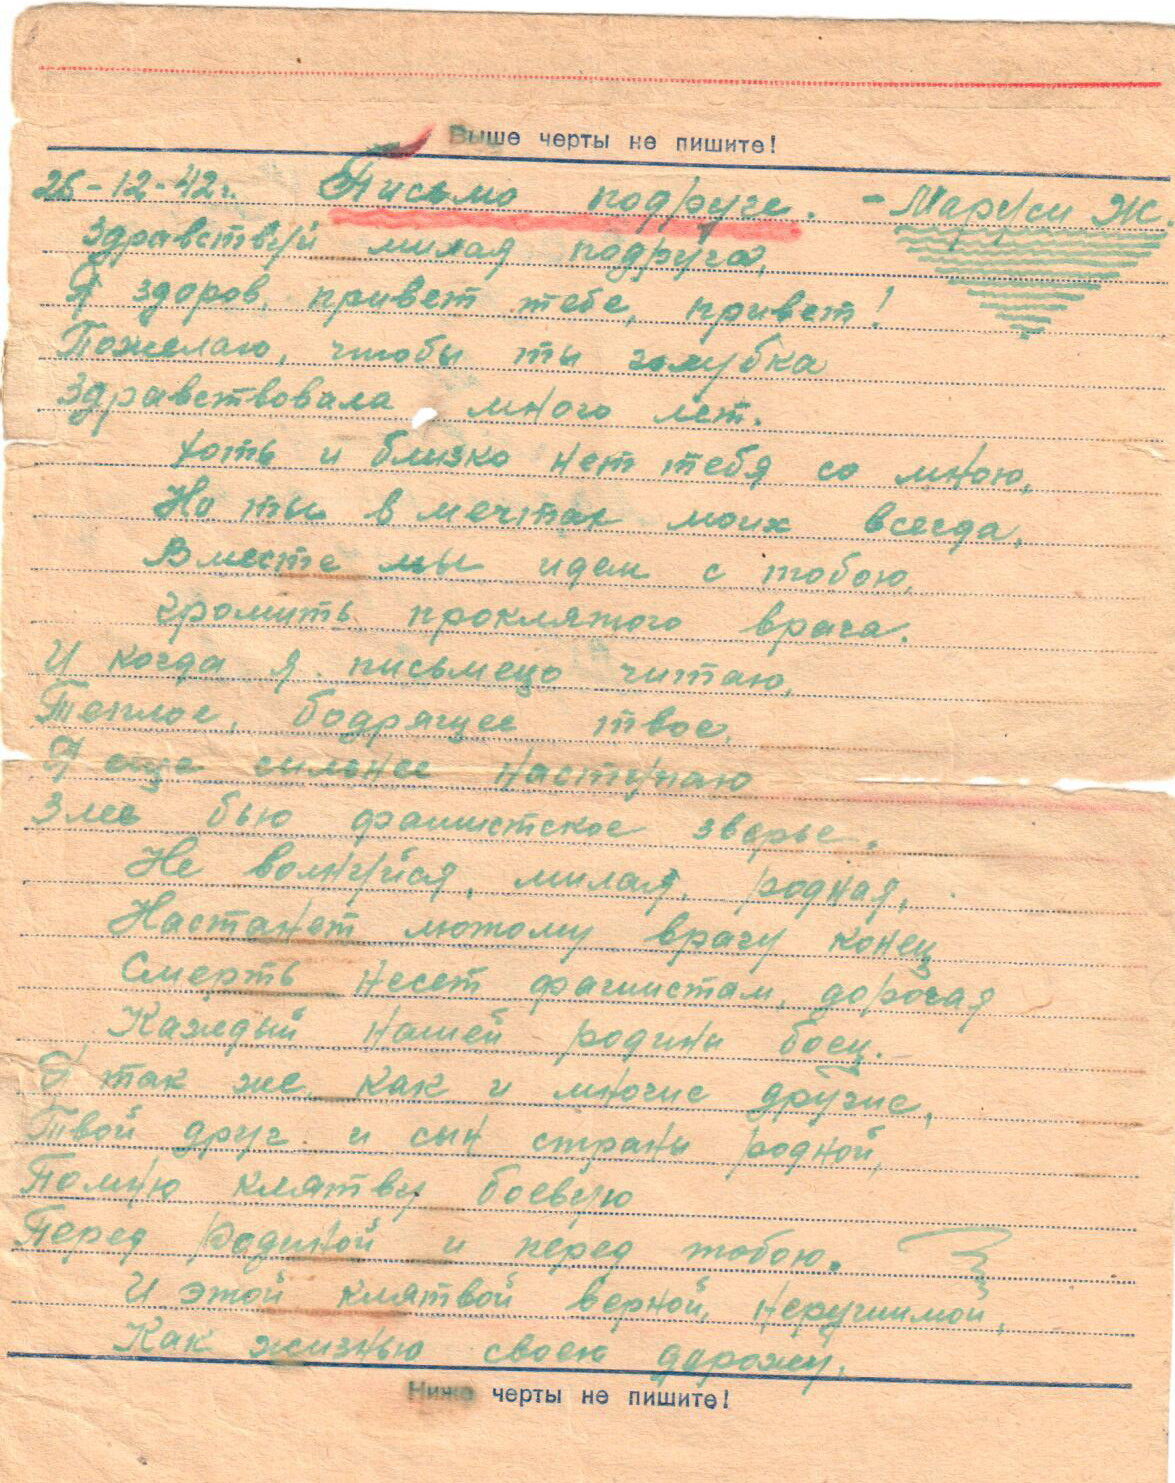 Выше черты не пишите!
26-12-42г. Письмо подруге. - Маруси Ж.
Здравствуй милая подруга,
Я здоров, привет тебе, привет!
Пожелаю, чтобы ты голубка
Здравствовала много лет.
Хоть и близко нет тебя со мною,
Но ты в мечтах моих всегда,
Вместе мы идем с тобою,
Громить проклятого врага.
И когда я письмецо читаю,
Теплое, бодрящее твое,
Я еще сильнее наступаю
Злее бью фашистское зверье.
Не волнуйся, милая, родная,
Настанет лютому врагу конец
Смерть несет фашистам, дорогая
Каждый нашей родины боец.
Я так же, как и многие другие,
Твой друг и сын страны родной,
Помню клятву боевую
Перед Родиной и перед тобою.
И этой клятвой верной, нерушимой,
Как жизнью своею дорожу.
Ниже черты не пишите!